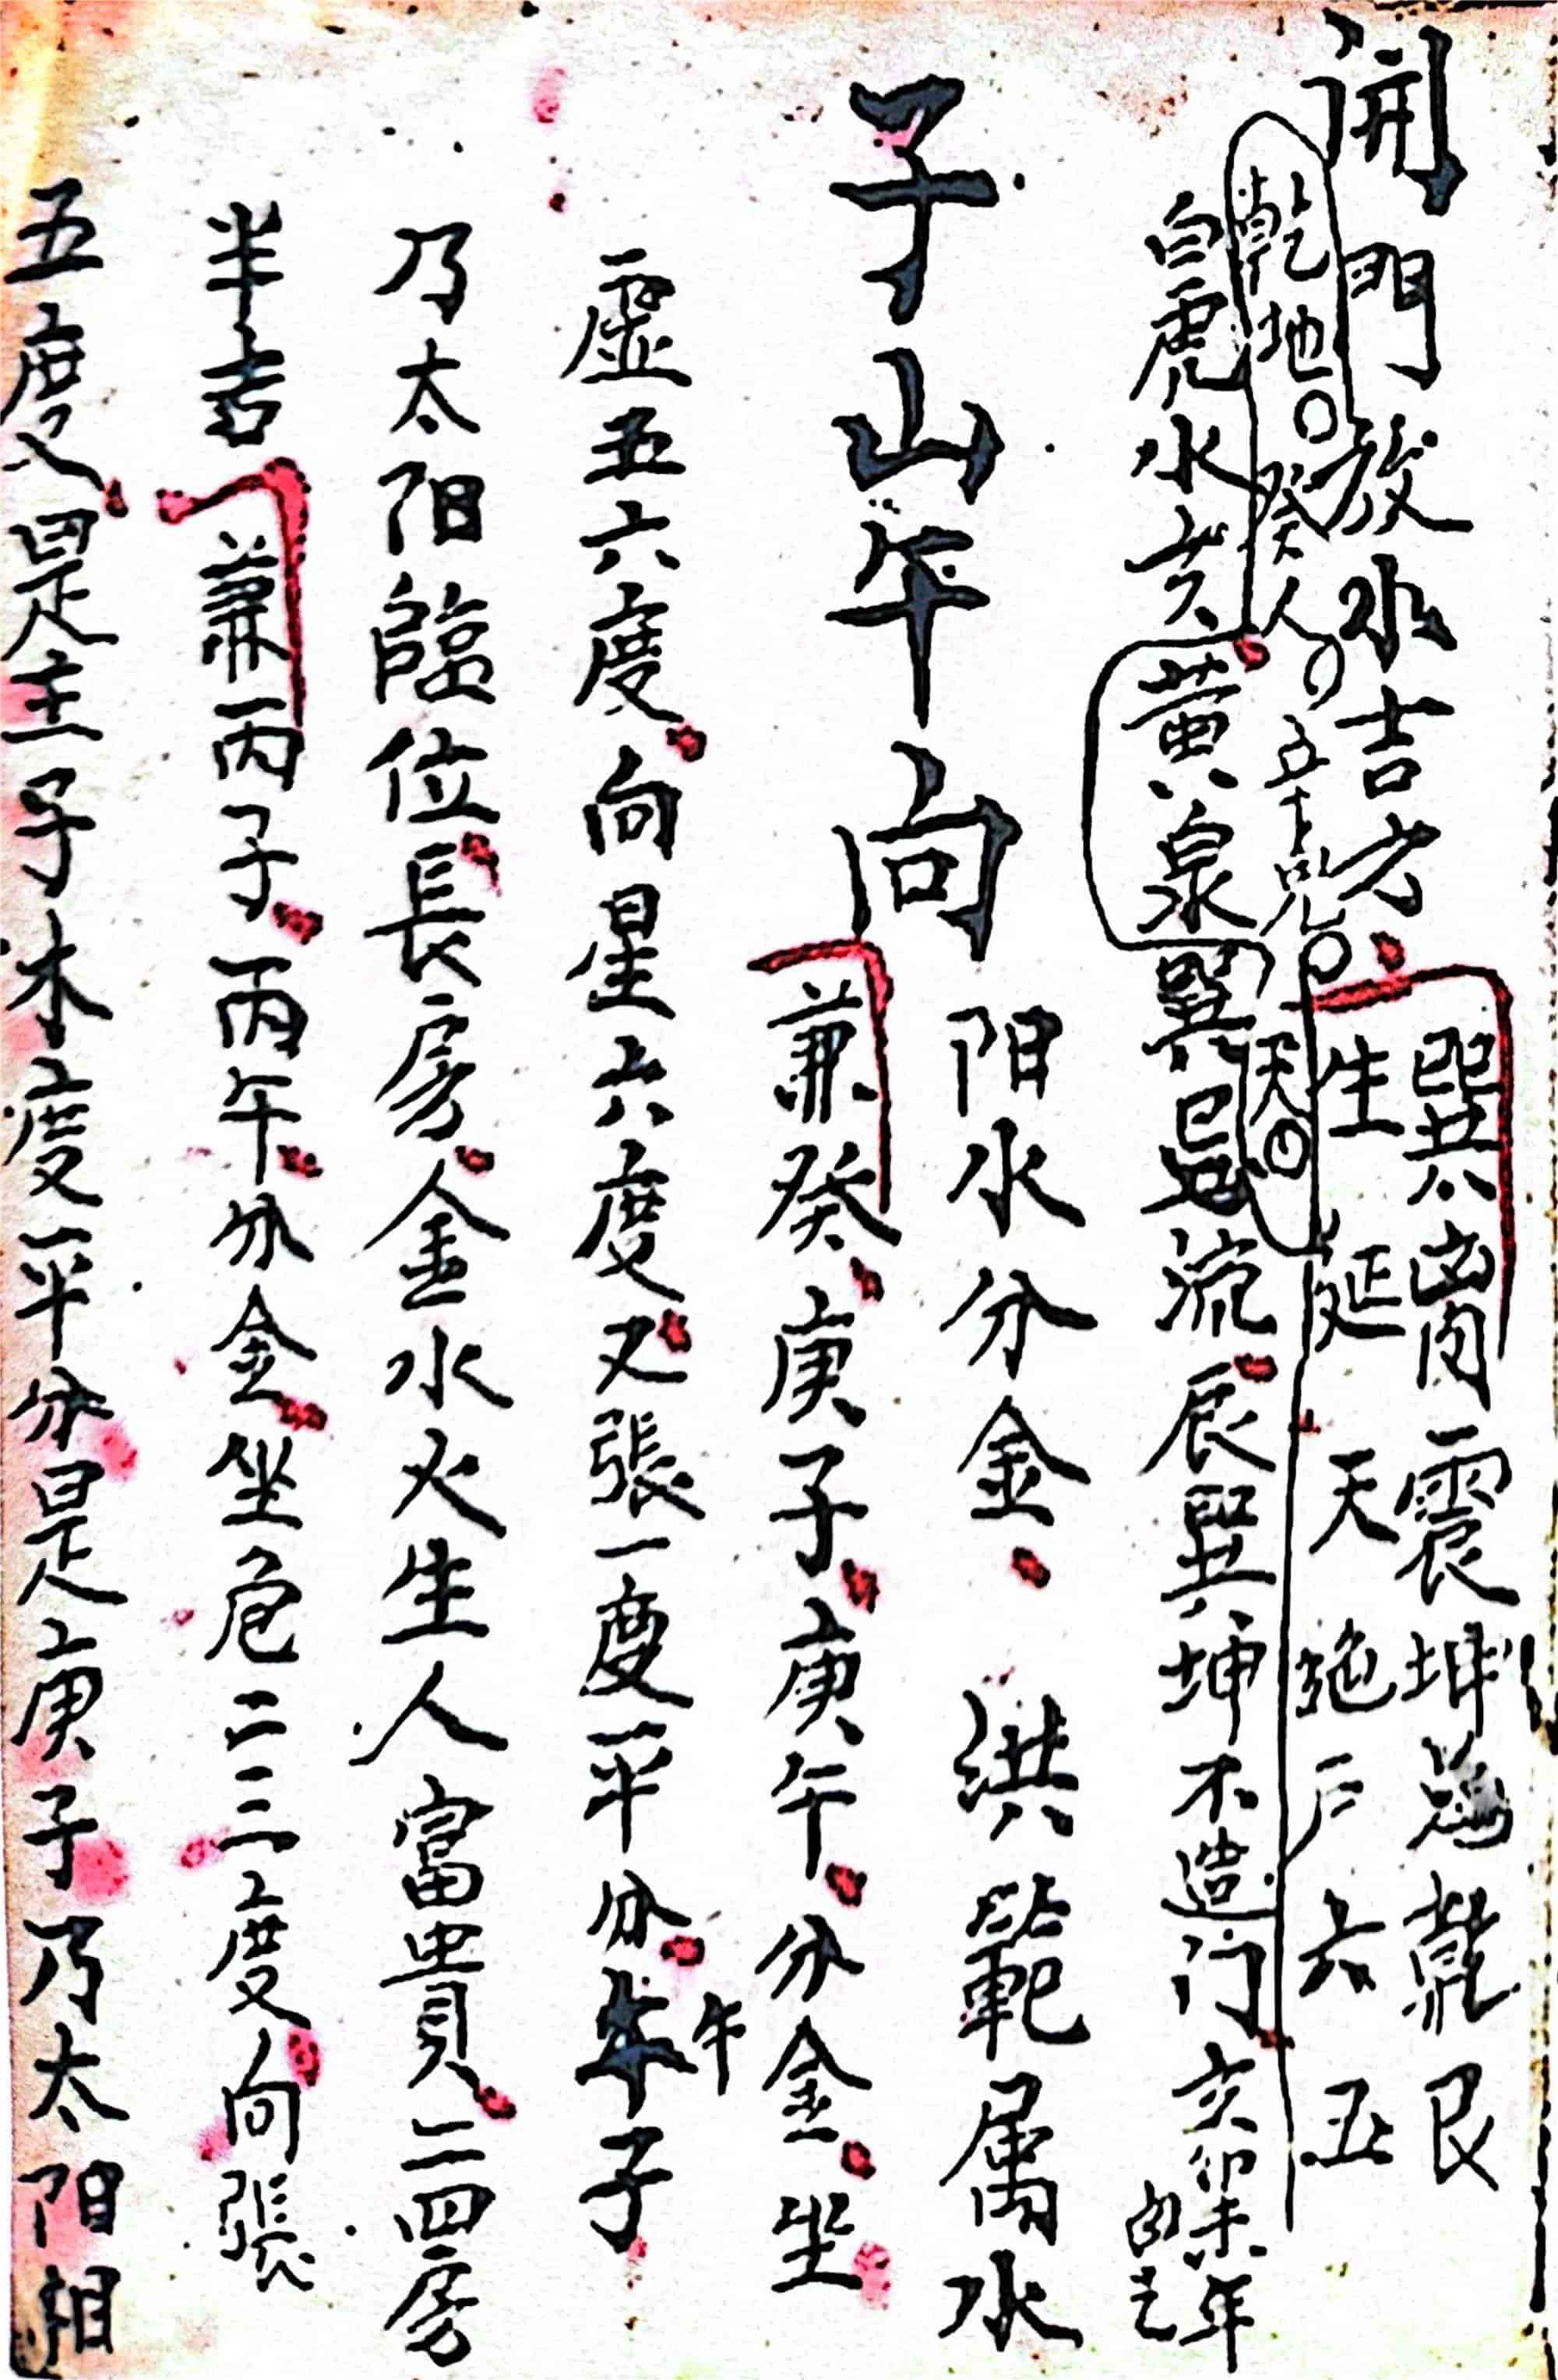 開門放水吉方
巽離震坤兌乾艮
生延天絕尸六五
乾地癸人五十兄天
白虎水亥黃泉巽忌流辰巽坤不造门亥卯未年
子山午向 阳水分金 洪範属水
兼癸庚子庚午分金坐
虛五六度向星六度又張一度平分午子
乃太阳臨位長房金水火生人富貴二四房
半吉兼丙子丙午分金坐危二三度向張
五度又是主子木度平分是庚子乃太阳相